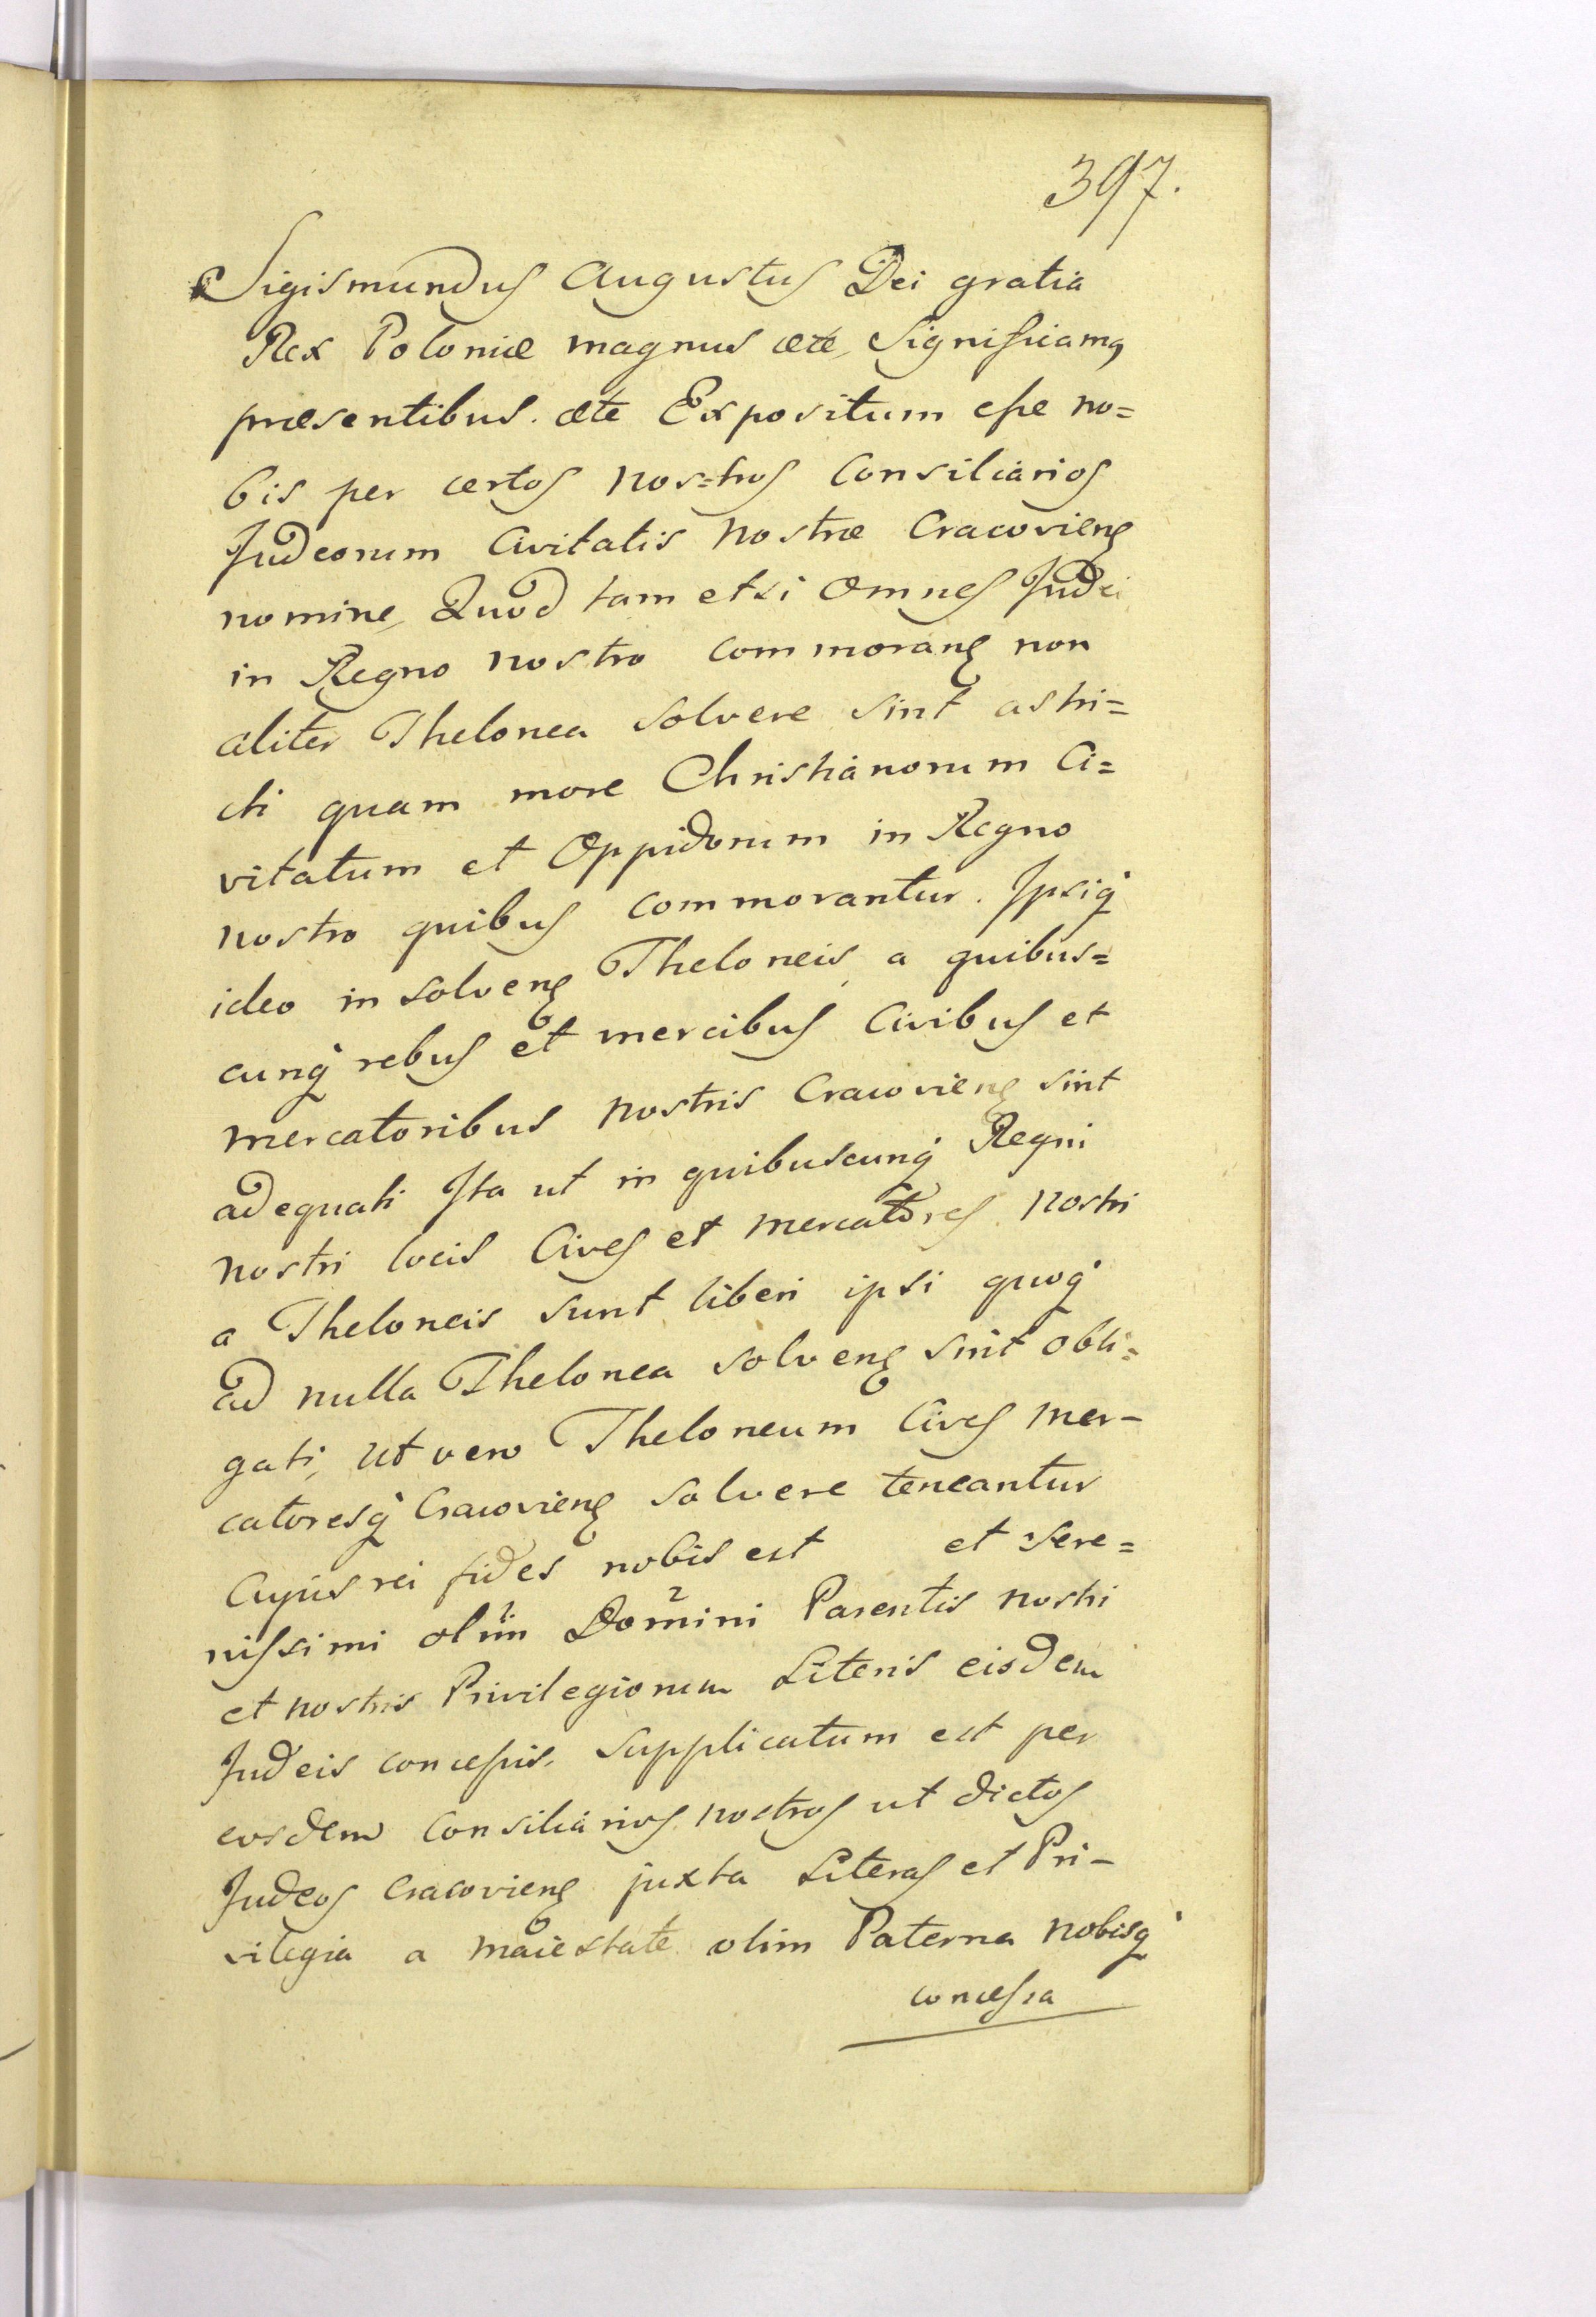 397.
Sigismundus Augustus Dei gratia
Rex Poloniæ magnus ætc, Significamꝰ
præsentibus. ætc Expositum esse no=
bis per certos nos=tros Consiliarios
Judeorum Civitatis Nostræ Cracovienꝭ
nomine, Quod tametsi Omnes Judei
in Regno nostro commoranꝭ non
aliter Thelonea solvere sint astri=
cti quam more Christianorum Ci=
vitatum et Oppidorum in Regno
nostro quibus commorantur. Ipsiq́
ideo in solvenꝭ Theloneis a quibus=
cunq́ rebus et mercibus Civibus et
mercatoribus Nostris Cracovienꝭ sint
adequati Ita ut in quibuscunq́ Regni
nostri locis Cives et mercatores nostri
a Theloneis sunt liberi ipsi quoq́
ad nulla Thelonea solvenꝭ sint obli=
gati, Ut vero Theloneum Cives Mer-
catoresq́ Cracovienꝭ solvere teneantur
Cujus rei fides nobis est et Sere=
nissimi olim Domini Parentis nostri
et nostris Privilegiorum Literis eisdem
Judeis concessis. Supplicatum est per
eosdem Consiliarios nostros ut dictos
Judeos Cracovienꝭ juxta Literas et Pri-
vilegia a Maiestate olim Paterna Nobisq́
concessa